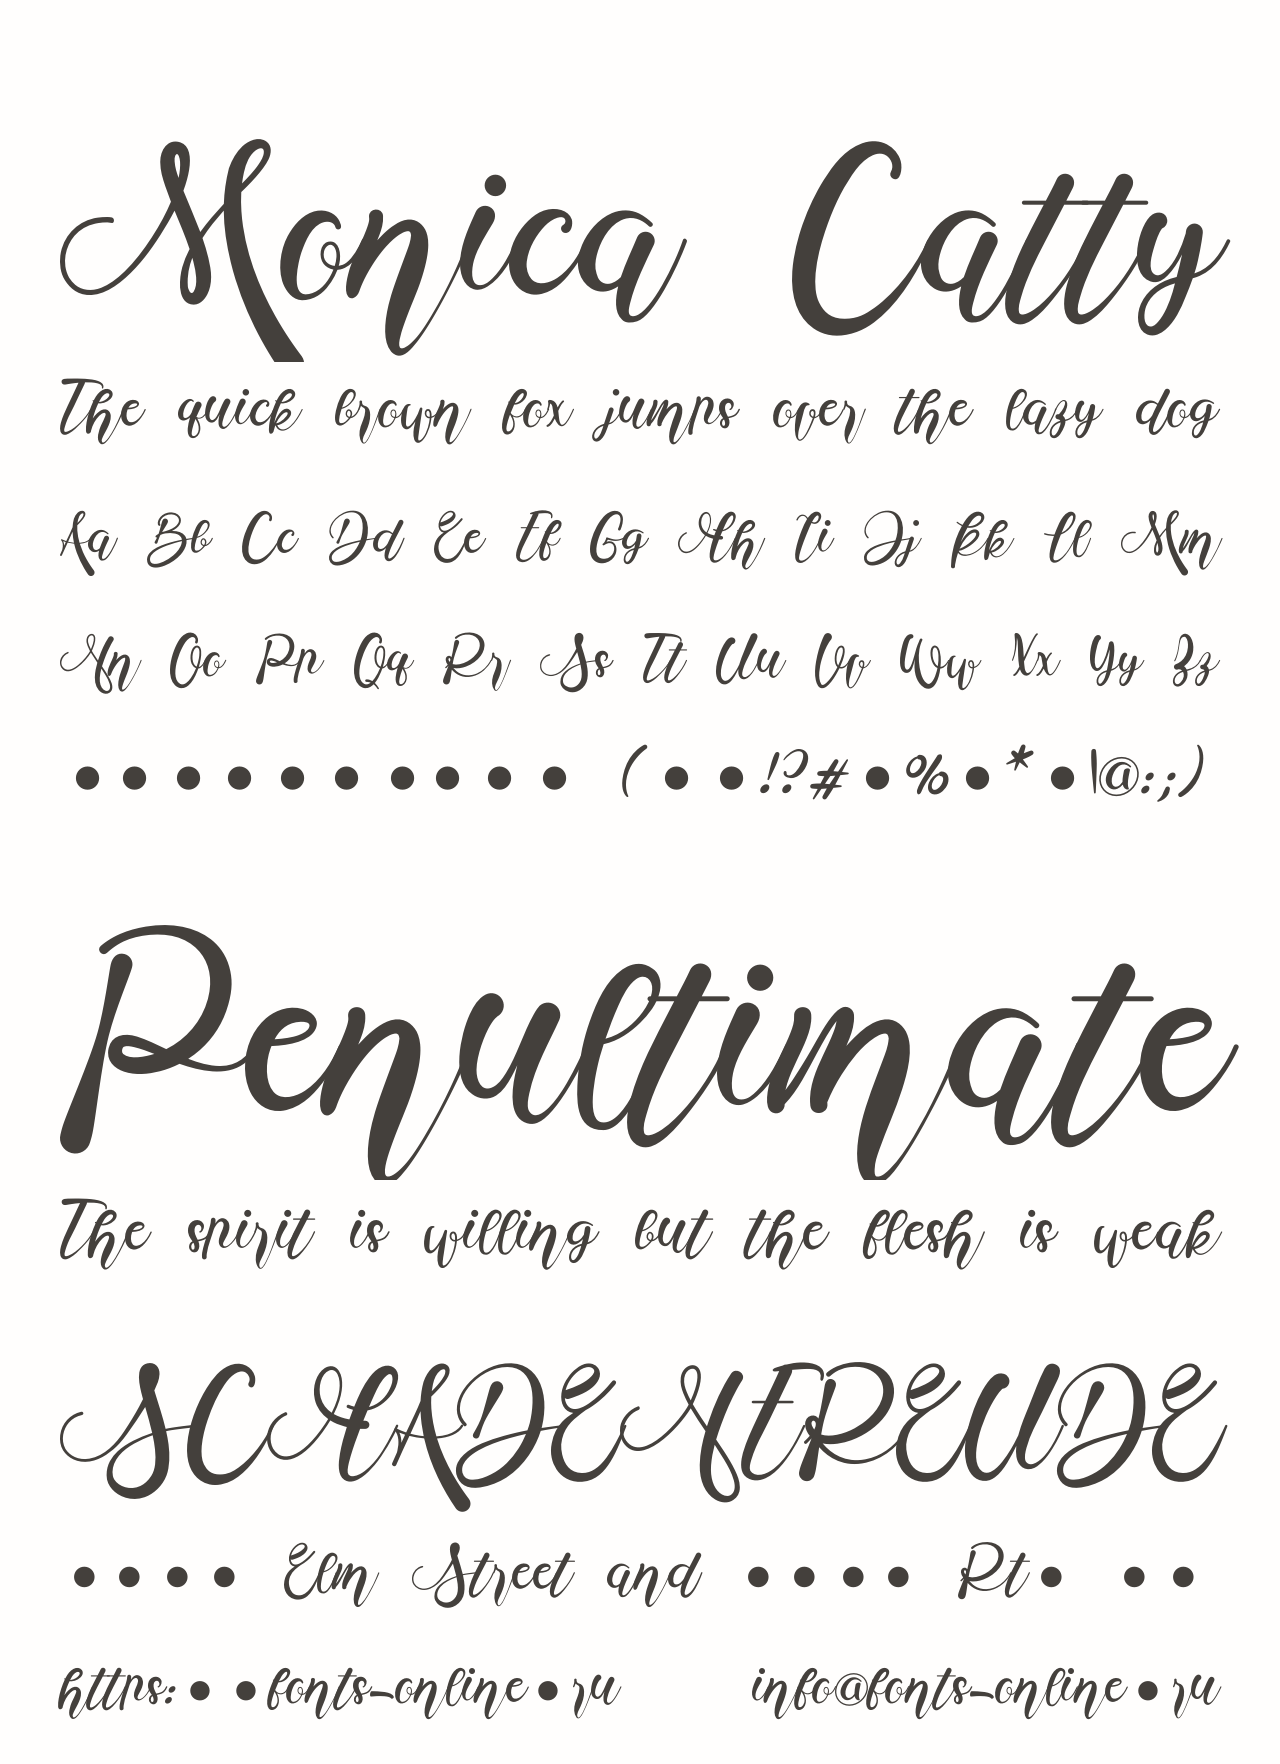 Monica Catty
The quick brown fox jumps over the lazy dog
Aa Bb Cc Dd Ee Ff Gg Hh Ii Jj Kk Ll Mm
Nn Oo Pp Qq Rr Ss Tt Uu Vv Ww Xx Yy Zz
●●●●●●●●●● (●●!?#●%●*●|@:;)
Penultimate
The spirit is willing but the flesh is weak
SCHADENFREUDE
●●●● Elm Street and ●●●● Rt● ●●
https:●●fonts-online●ru info@fonts-online●ru